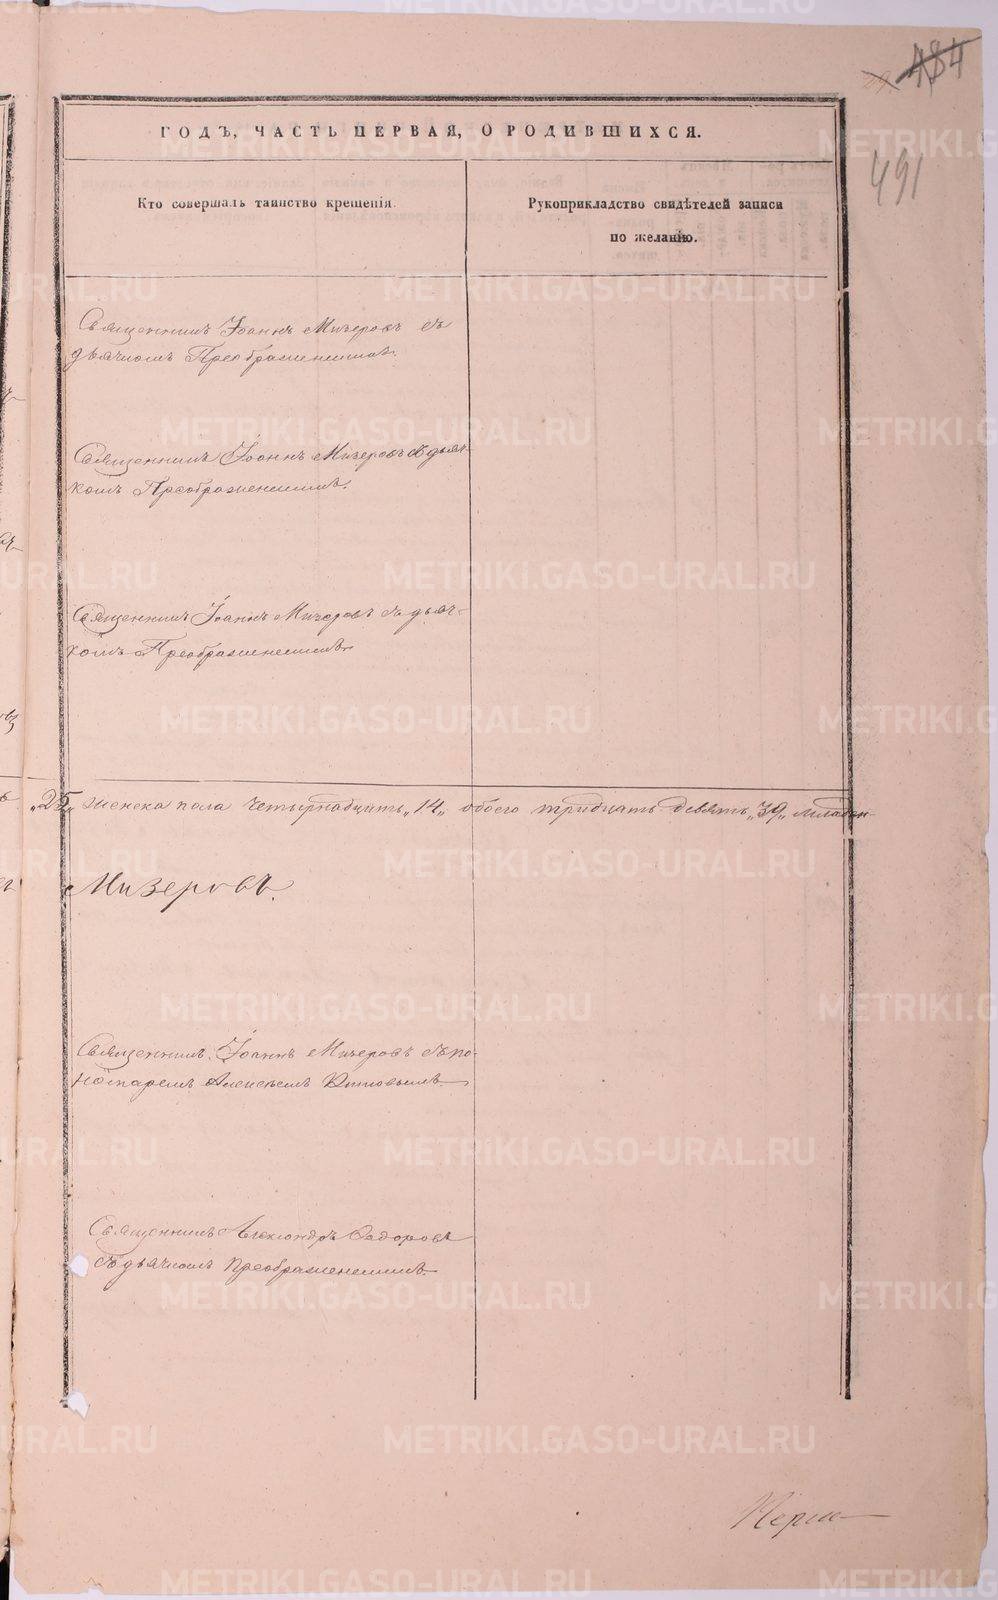 484
491
ГОДЪ, ЧАСТЬ ПЕРВАЯ, О РОДИВШИХСЯ.
Кто совершалъ таинство крещенія.
Рукоприкладство свидѣтелей записи
по желанію.
Священникъ Іоаннъ Мизеровъ съ
дьячкомъ Преображенскимъ.
Священникъ Іоаннъ Мизеровъ съ дьяч-
комъ Преображенскимъ.
Священникъ Іоаннъ Мизеровъ съ дьяч-
комъ Преображенскимъ
„25„ женска пола четырнадцать „14„ обоего тридцать девять „39„ младен-
Мизеровъ.
Священникъ Іоаннъ Мизеровъ съ по-
номаремъ Алексѣемъ
Священникъ Александръ Ѳедоровъ
съ дьячкомъ Преображенскимъ.
METRIKI.GASO-URAL.RU